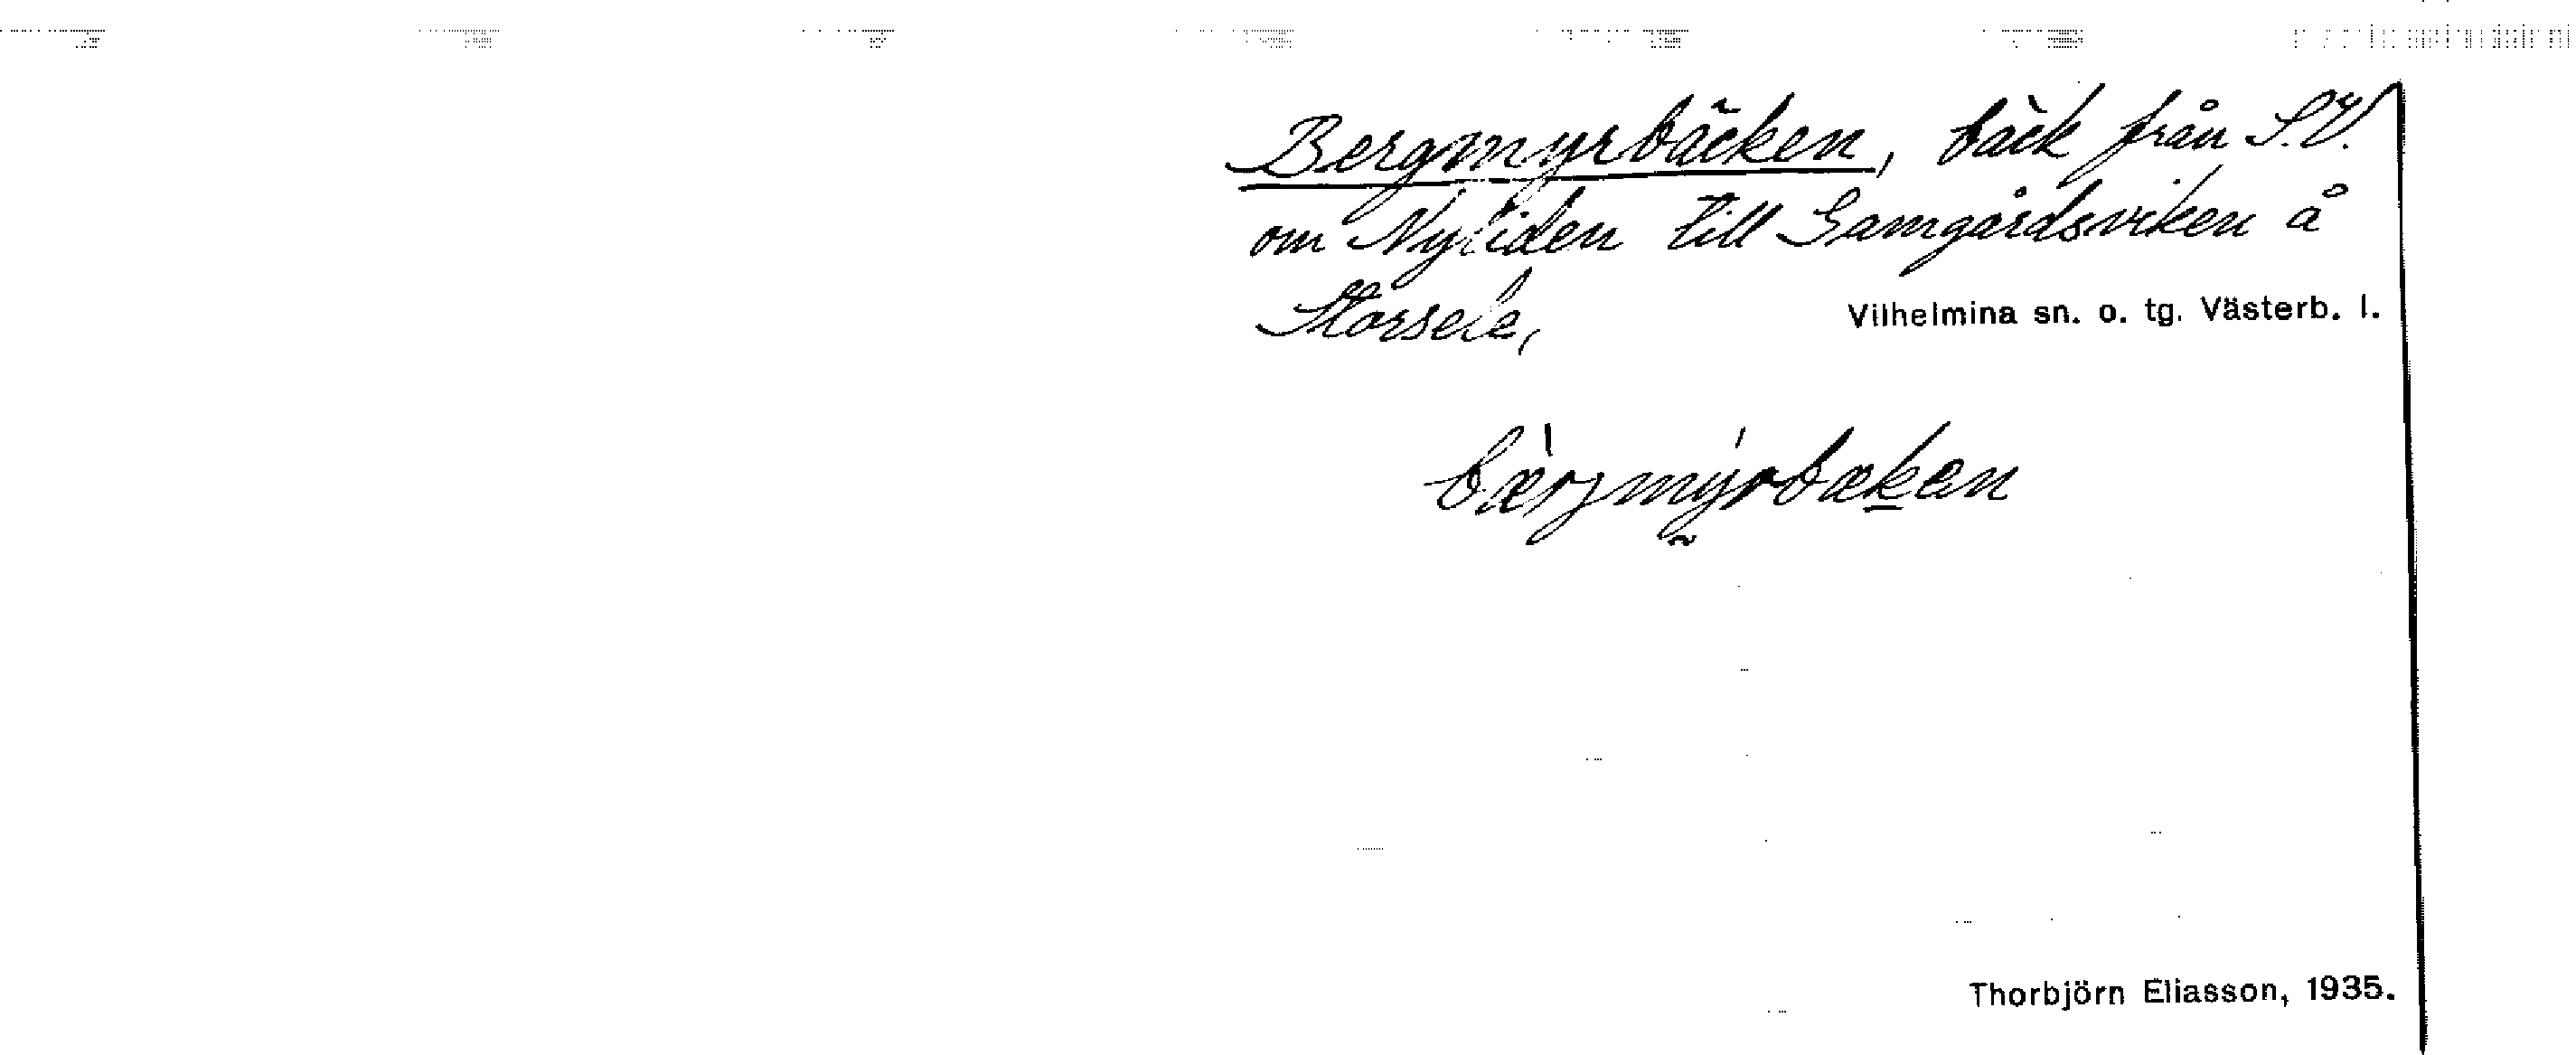 Bergmyrbäcken, bäck från S.V.
om Nyliden till Gamgårdsviken å
Storsele,
Vilhelmina sn. o. tg. Västerb. l.
bær̀jmý̰rbæk̲en
Thorbjörn Eliasson, 1935.